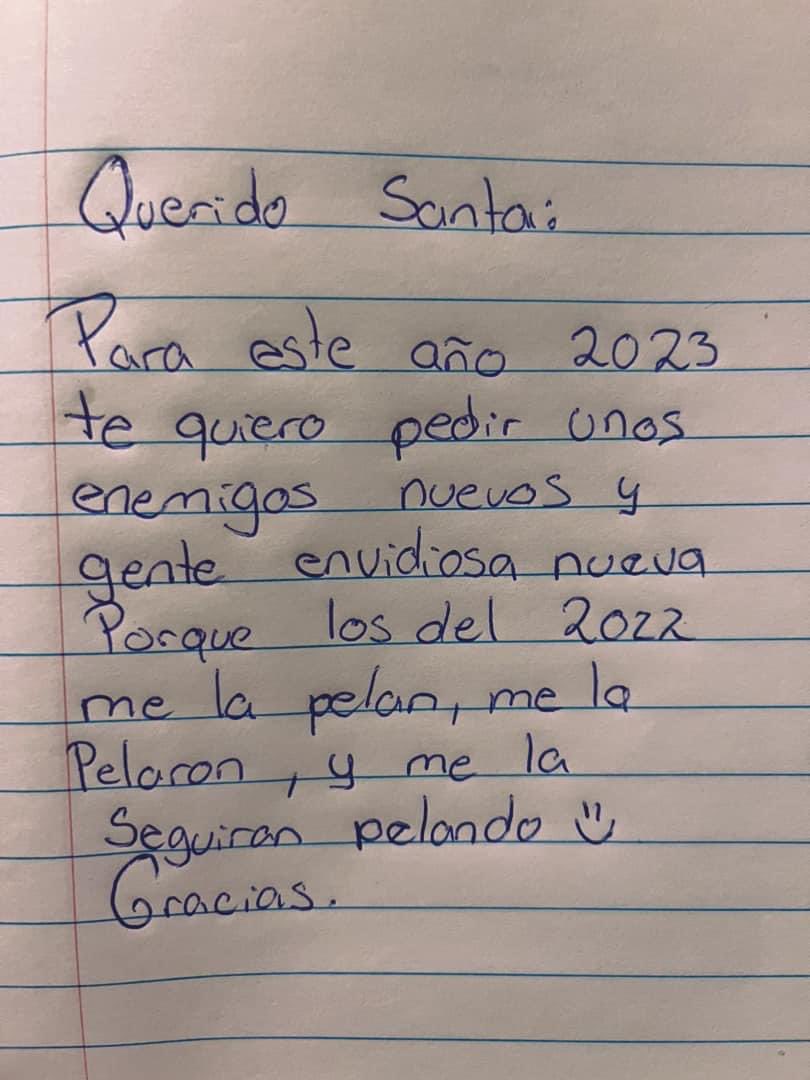 Querido Santa:
Para este año 2023
te quiero pedir unos
enemigos nuevos y
gente envidiosa nueva
Porque los del 2022
me la pelan, me la
Pelaron, y me la
Seguiran pelando
Gracias.